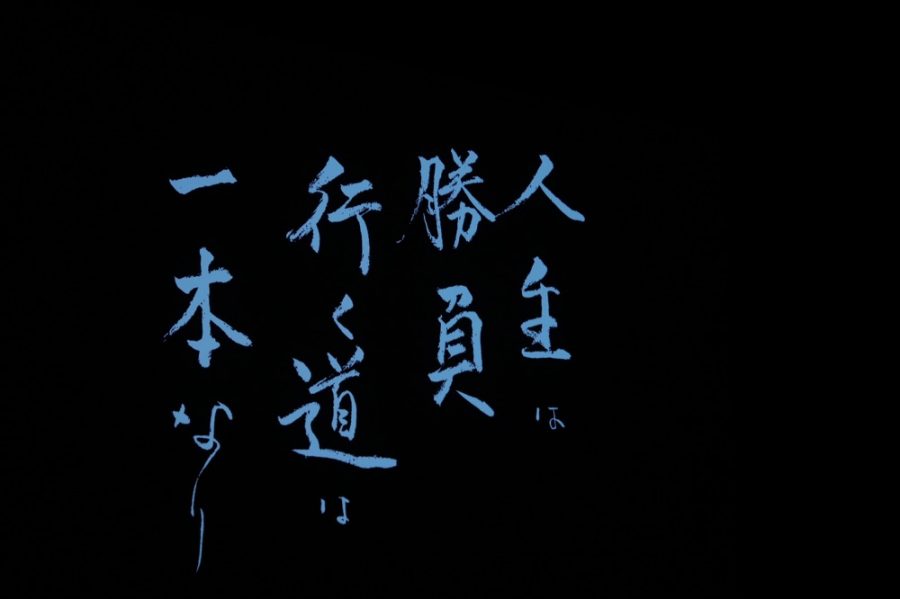 人生は
勝負
行く道は
一本なり